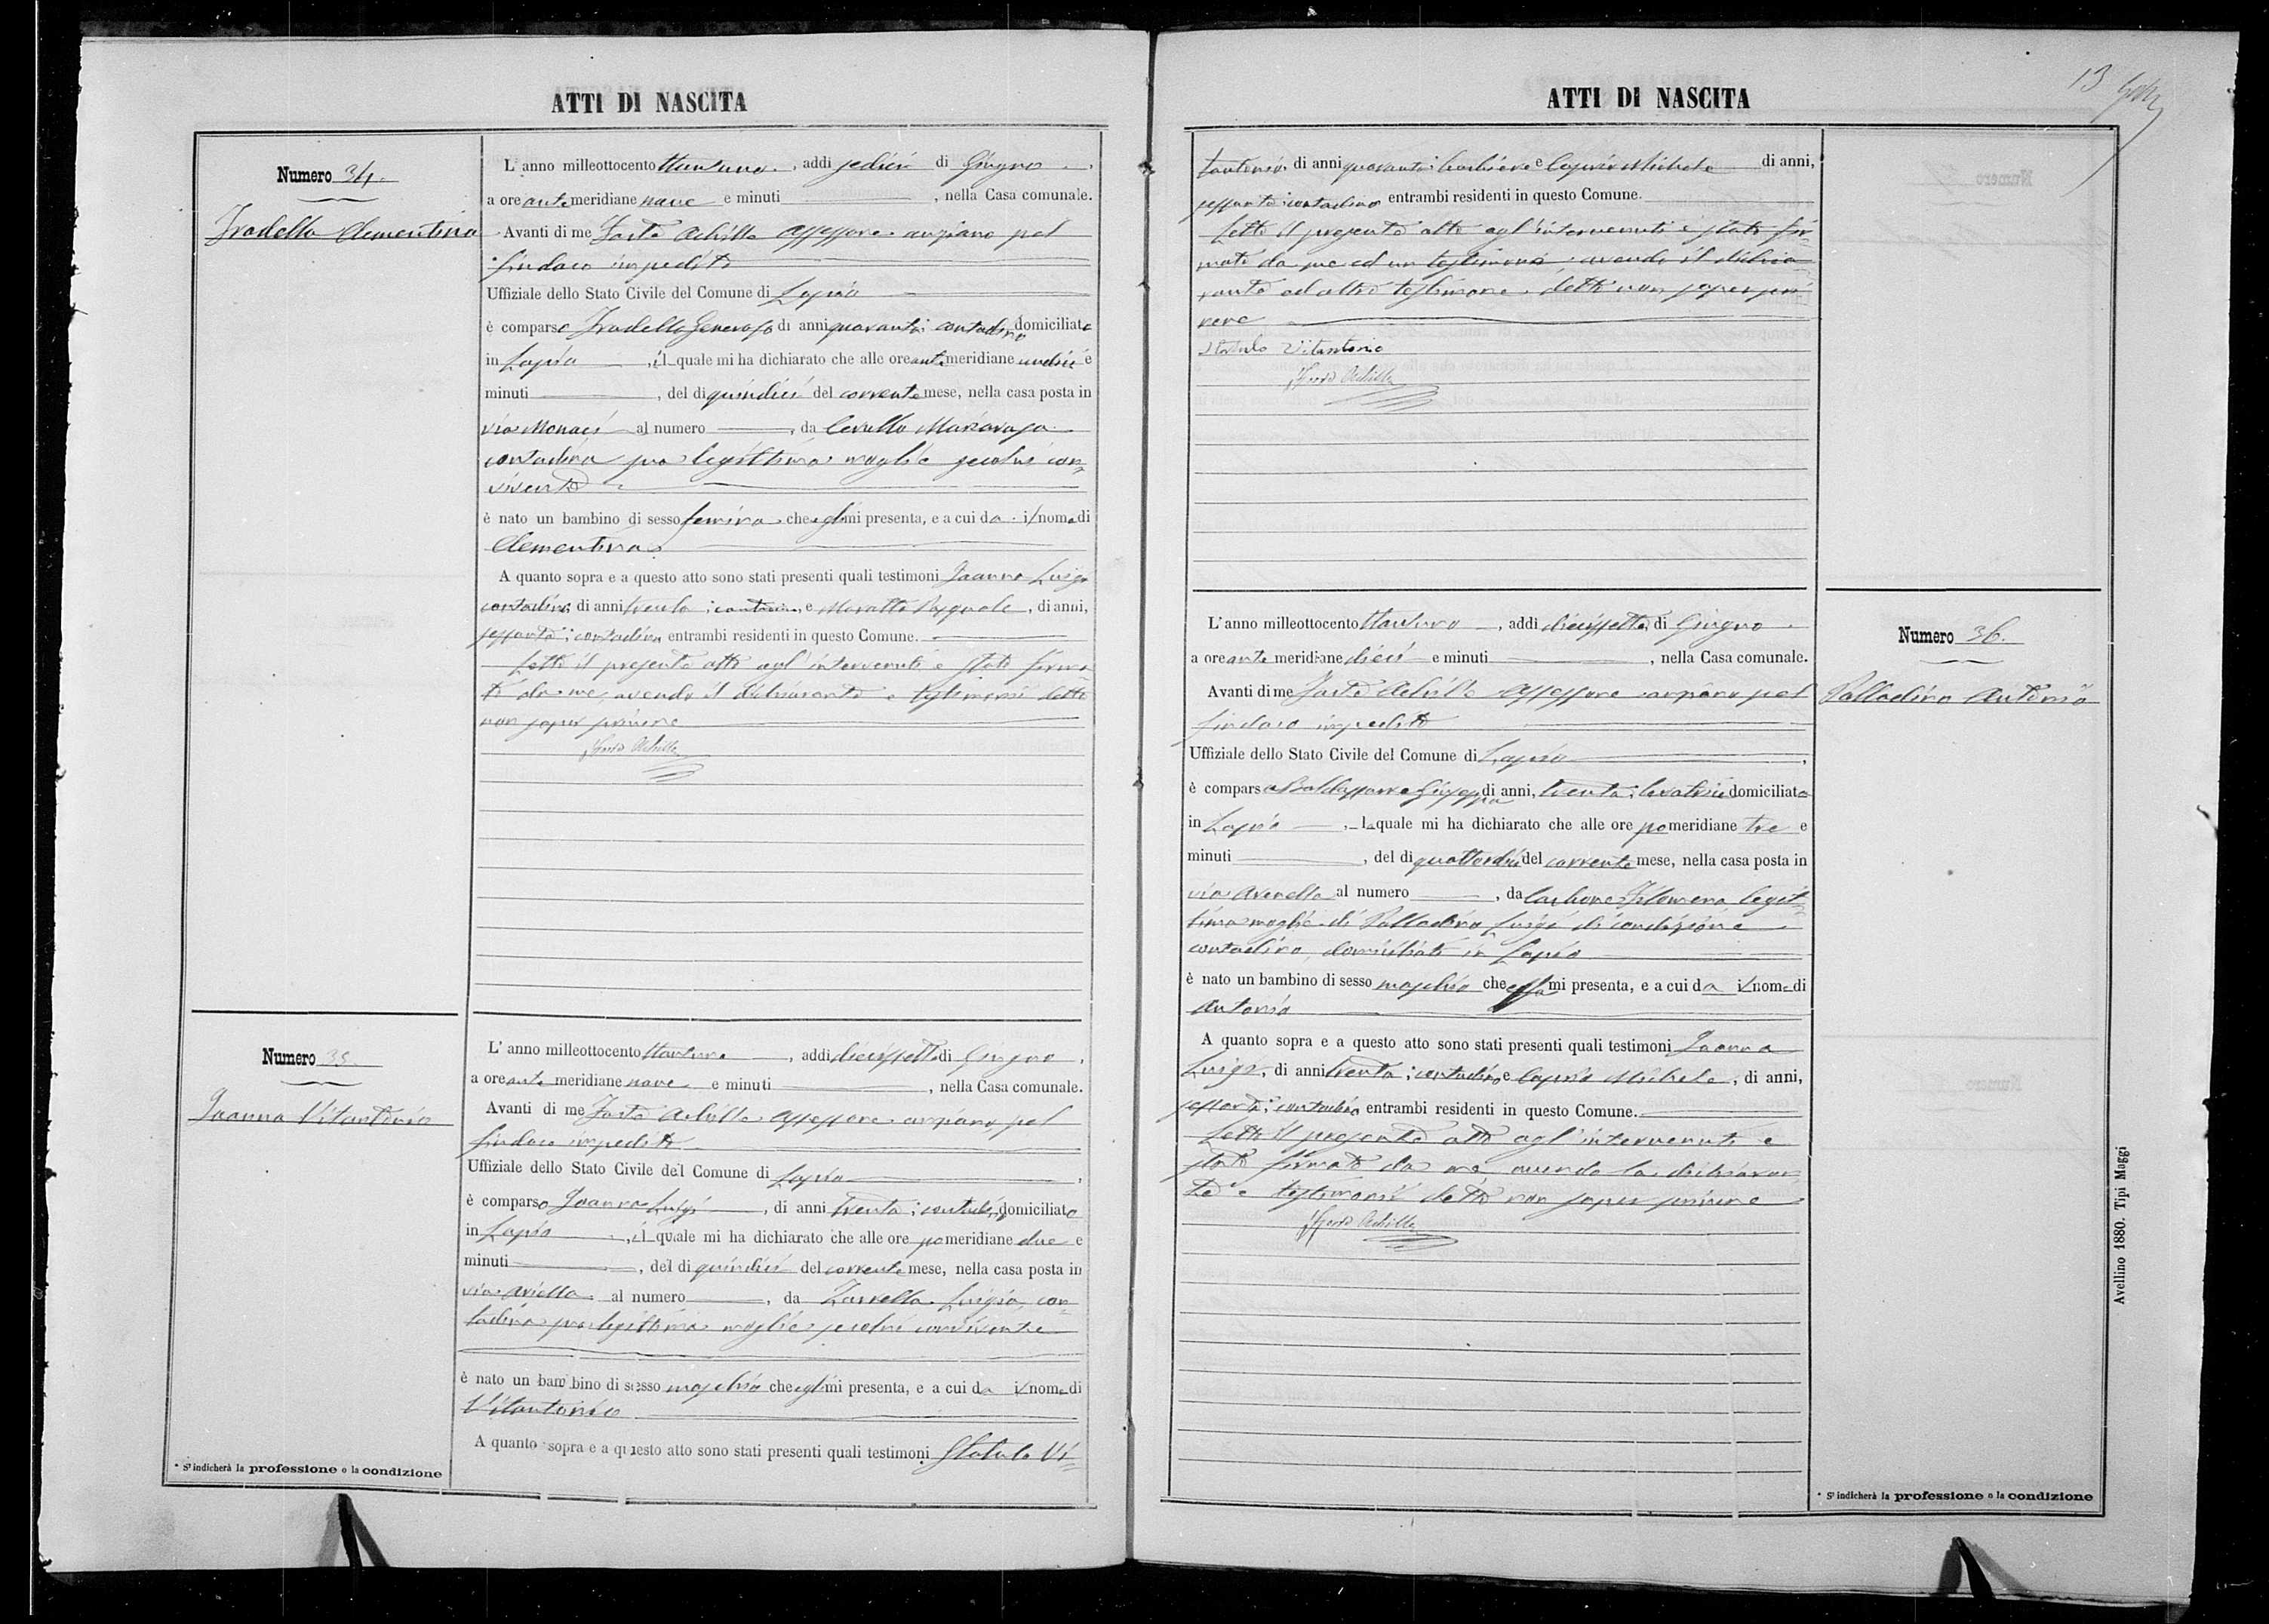 ATTI DI NASCITA
Numero 34.
Iradella Clementina
L'anno milleottocento ttantuno, addì sedici di Giugno,
a ore antemeridiane nove e minuti , nella Casa comunale.
Avanti di me Forte Achille Assessore anziano pel
Sindaco impedito
Uffiziale dello Stato Civile del Comune di Lapio
è comparso Iradella Generoso di anni quaranta; contadino domiciliato
in Lapio , il quale mi ha dichiarato che alle ore antemeridiane undici e
minuti , del dì quindici del corrente mese, nella casa posta in
via Monaci al numero , da
contadina sua legittima moglie secolui con
vivente
è nato un bambino di sesso femina che egli mi presenta, e a cui da il nome di
Clementina
A quanto sopra e a questo atto sono stati presenti quali testimoni Joanna Luigi
contadino di anni trenta; , e Moratto Pasquale, di anni,
sessanta; contadino entrambi residenti in questo Comune.
Letto il presente atto agl'intervenuti è stato firma
to da me, avendo il dichiarante e testimoni detto
non saper scrivere
Forte Achille
Numero 35.
Joanna Vitantonio
L'anno milleottocento ttantuno , addì diecissette di Giugno,
a ore antemeridiane nove e minuti , nella Casa comunale.
Avanti di me Forte Achille Assessore anziano, pel
Sindaco impedito
Uffiziale dello Stato Civile del Comune di Lapio ,
è comparso Joanna Luigi , di anni trenta; contadino domiciliato
in Lapio , il quale mi ha dichiarato che alle ore pomeridiane due e
minuti , del dì quindici del corrente mese, nella casa posta in
via Ariella al numero , da Zarrella Luigia, con
tadina sua legittima moglie secolui convivente
è nato un bambino di sesso maschio che egli mi presenta, e a cui da il nome di
Vitantonio
A quanto sopra e a questo atto sono stati presenti quali testimoni Statuto Vi
* Si indicherà la professione o la condizione
ATTI DI NASCITA
13
tantonio di anni quaranta; barbiere e Caprio Michele di anni,
sessanta; contadino entrambi residenti in questo Comune.
Letto il presente atto agl'intervenuti è stato fir
mato da me ed un testimone, avendo il dichia
rante ed altro testimone detto non saper scri
vere
Vitantonio
Forte Achille
L'anno milleottocento ttantuno , addì diecissette, di Giugno
a ore antemeridiane dieci e minuti , nella Casa comunale.
Avanti di me Forte Achille Assessore anziano pel
Sindaco impedito
Uffiziale dello Stato Civile del Comune di Lapio ,
è comparsa Baldassarre Giuseppa di anni, trenta; levatrice domiciliata
in Lapio , la quale mi ha dichiarato che alle ore pomeridiane tre e
minuti , del dì quattordici del corrente mese, nella casa posta in
via Avenella al numero , da Carbone Filomena, legit
tima moglie di Palladino Luigi di condizione
contadino, domiciliati in Lapio
è nato un bambino di sesso maschio che essa mi presenta, e a cui da il nome di
Antonio
A quanto sopra e a questo atto sono stati presenti quali testimoni Joanna
Luigi, di anni trenta; contadino e Caprio Michele, di anni,
sessanta; contadino entrambi residenti in questo Comune.
Letto il presente atto agl'intervenuti è
stato firmato da me avendo la dichiaran
te e testimonii detto non saper scrivere
Forte Achille
Numero 36.
Palladino Antonio
Avellino 1880. Tipi Maggi
* Si indicherà la professione o la condizione